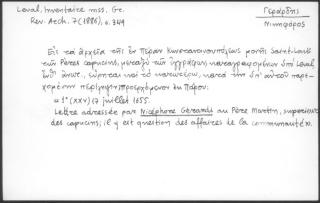 Laval, Inventaire mss. Gr.
Rev. Arch. 7 (1886), σ. 349
Γεράρδης
Νικηφόρος
Εἰς τὰ ἀρχεῖα τῆς ἐν Πέραν Κωνσταντινουπόλεως μονῆς Saint-Louis
τῶν Pères capucins, μεταξὺ τῶν ἐγγράφων, καταγραφομένων ὑπὸ Laval
ἔνθ' ἀνωτ., εὕρηται καὶ τὸ κατωτέρω, κατὰ τὴν ὑπ' αὐτοῦ παρε-
χομένην περίληψιν προερχόμενον ἐκ Πάρου:
« 1° (XXV) 17 juillet 1655.
Lettre adressée par Nicéphore Gérardi au Père Martin, supérieur
des capucins; il y est question des affaires de la communauté».